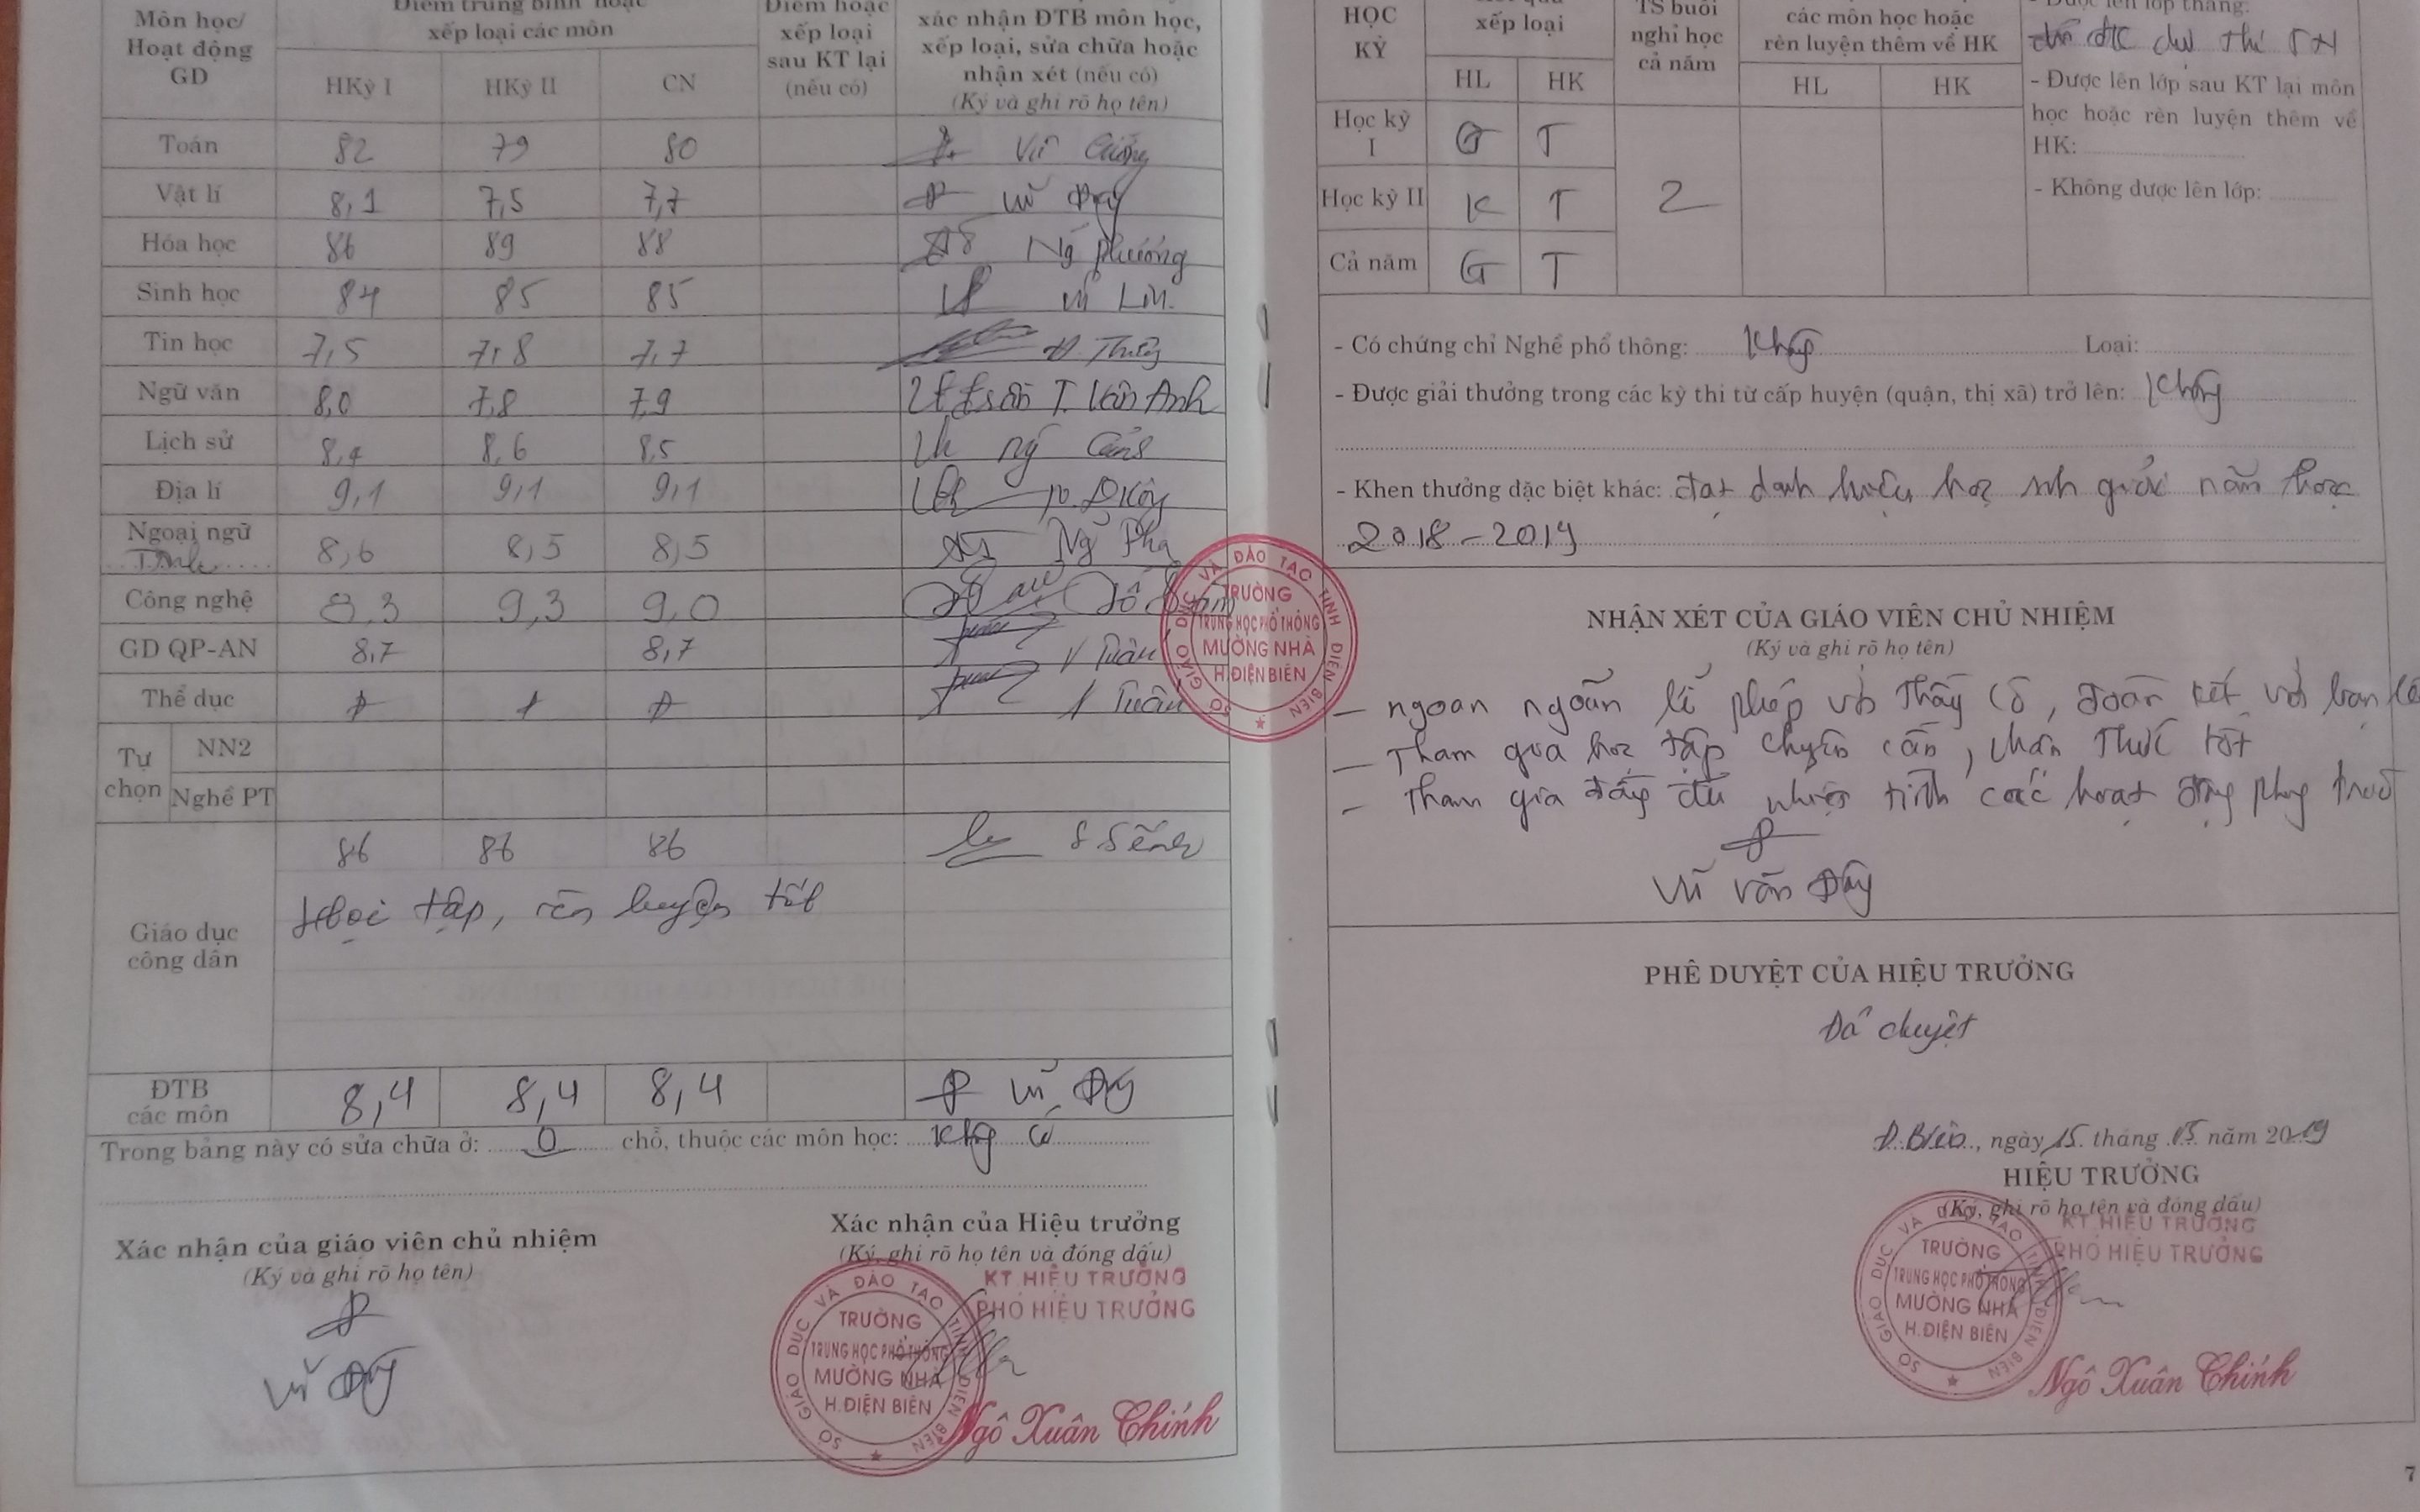 Môn học/
Hoạt động
GD
Điểm trung bình hoặc
xếp loại các môn
HKỳ I HKỳ II CN
Điểm hoặc
xếp loại
sau KT lại
(nếu có)
xác nhận ĐTB môn học,
xếp loại, sửa chữa hoặc
nhận xét (nếu có)
(Ký và ghi rõ họ tên)
Toán 82 79 80
Vật lí 8,1 7,5 7,7 Vũ Đây
Hóa học 86 89 88 Ng Phương
Sinh học 84 85 85
Tin học 7,5 7,8 7,7
Ngữ văn 8,0 7,8 7,9 T. Vân Anh
Lịch sử 8,4 8,6 8,5
Địa lí 9,1 9,1 9,1
Ngoại ngữ 8,6 8,5 8,5
T.Anh
Công nghệ 8,3 9,3 9,0
GD QP-AN 8,7 8,7 Tuân
Thể dục Đ Đ Đ Tuân
Tự
chọn
NN2
Nghề PT
Giáo dục
công dân
86 86 86
Học tập, rèn luyện tốt
ĐTB
các môn
8,4 8,4 8,4 Vũ Đây
Trong bảng này có sửa chữa ở: 0 chỗ, thuộc các môn học: Không có
Xác nhận của giáo viên chủ nhiệm
(Ký và ghi rõ họ tên)
Vũ Đây
Xác nhận của Hiệu trưởng
(Ký, ghi rõ họ tên và đóng dấu)
KT.HIỆU TRƯỞNG
PHÓ HIỆU TRƯỞNG
SỞ GIÁO DỤC VÀ ĐÀO TẠO TỈNH ĐIỆN BIÊN
TRƯỜNG
TRUNG HỌC PHỔ THÔNG
MƯỜNG NHÀ
H.ĐIỆN BIÊN
Ngô Xuân Chính
SỞ GIÁO DỤC VÀ ĐÀO TẠO TỈNH ĐIỆN BIÊN
TRƯỜNG
TRUNG HỌC PHỔ THÔNG
MƯỜNG NHÀ
H.ĐIỆN BIÊN
HỌC
KỲ
xếp loại
HL HK
TS buổi
nghỉ học
cả năm
các môn học hoặc
rèn luyện thêm về HK
HL HK
Học kỳ
I
G T
Học kỳ II K T 2
Cả năm G T
- Được lên lớp thẳng:
dự thi TN
- Được lên lớp sau KT lại môn
học hoặc rèn luyện thêm về
HK:
- Không được lên lớp:
- Có chứng chỉ Nghề phổ thông: Không Loại:
- Được giải thưởng trong các kỳ thi từ cấp huyện (quận, thị xã) trở lên: Không
- Khen thưởng đặc biệt khác: đạt danh hiệu học sinh giỏi năm học
2018-2019
NHẬN XÉT CỦA GIÁO VIÊN CHỦ NHIỆM
(Ký và ghi rõ họ tên)
- ngoan ngoãn lễ phép với thầy cô, đoàn kết với bạn bè
- Tham gia học tập chuyên cần, nhận thức tốt
- Tham gia đầy đủ nhiệt tình các hoạt động phong trào
Vũ Văn Đây
PHÊ DUYỆT CỦA HIỆU TRƯỞNG
Đã duyệt
Đ.Biên, ngày 15 tháng 05 năm 2019
HIỆU TRƯỞNG
(Ký, ghi rõ họ tên và đóng dấu)
KT.HIỆU TRƯỞNG
PHÓ HIỆU TRƯỞNG
SỞ GIÁO DỤC VÀ ĐÀO TẠO TỈNH ĐIỆN BIÊN
TRƯỜNG
TRUNG HỌC PHỔ THÔNG
MƯỜNG NHÀ
H.ĐIỆN BIÊN
Ngô Xuân Chính
7